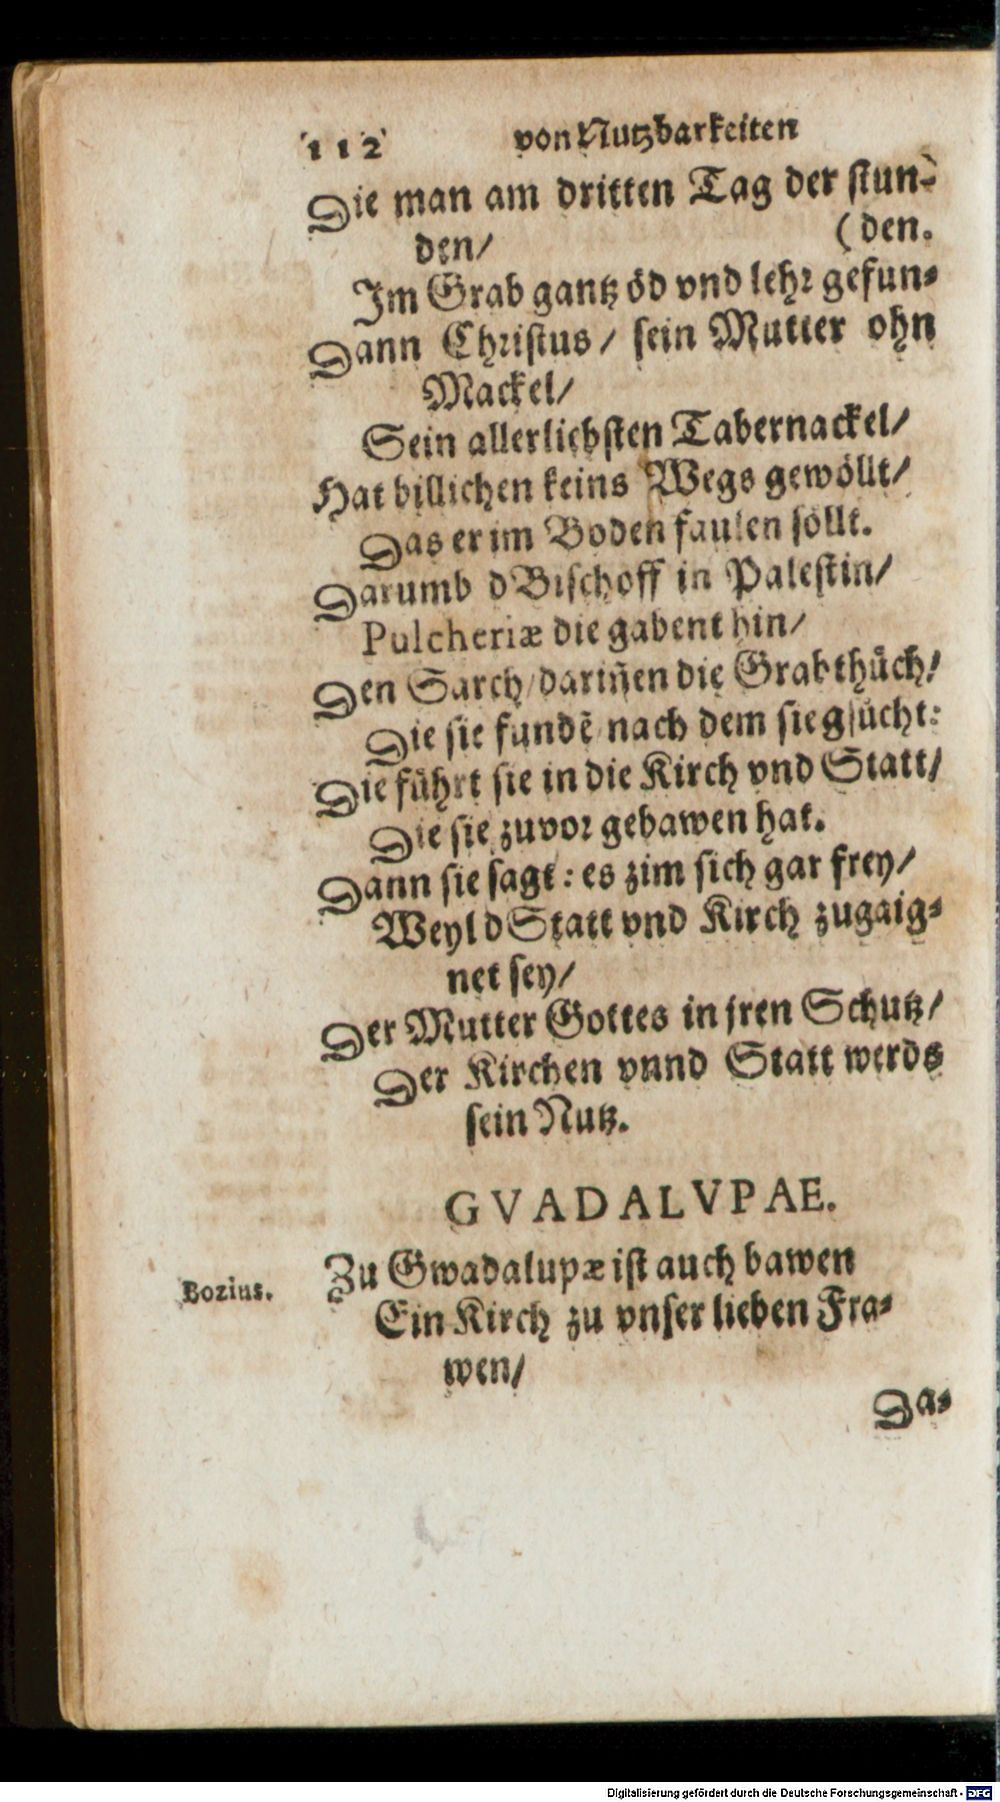 112 von Nutzbarkeiten
Die man am dritten Tag der stun-
den/ (den.
Im Grab gantz öd vnd lehr gefun-
Dann Christus/ sein Mutter ohn
Mackel/
Sein allerliebsten Tabernackel/
Hat billichen keins Wegs gewöllt/
Das er im Boden faulen söllt.
Darumb d Bischoff in Palestin/
Pulcheriæ die gabent hin/
Den Sarch/ dariñen die Grabthůch/
Die sie fundẽ nach dem sie gsůcht:
Die führt sie in die Kirch vnd Statt/
Die sie zuvor gebawen hat.
Dann sie sagt: es zim sich gar frey/
Weyl d Statt vnd Kirch zugaig-
net sey/
Der Mutter Gottes in jren Schutz/
Der Kirchen vnnd Statt werds
sein Nutz.
GVADALVPAE.
Bozius. Zu Gwadalupæ ist auch bawen
Ein Kirch zu vnser lieben Fra-
wen/
Da-
Digitalisierung gefördert durch die Deutsche Forschungsgemeinschaft - DFG